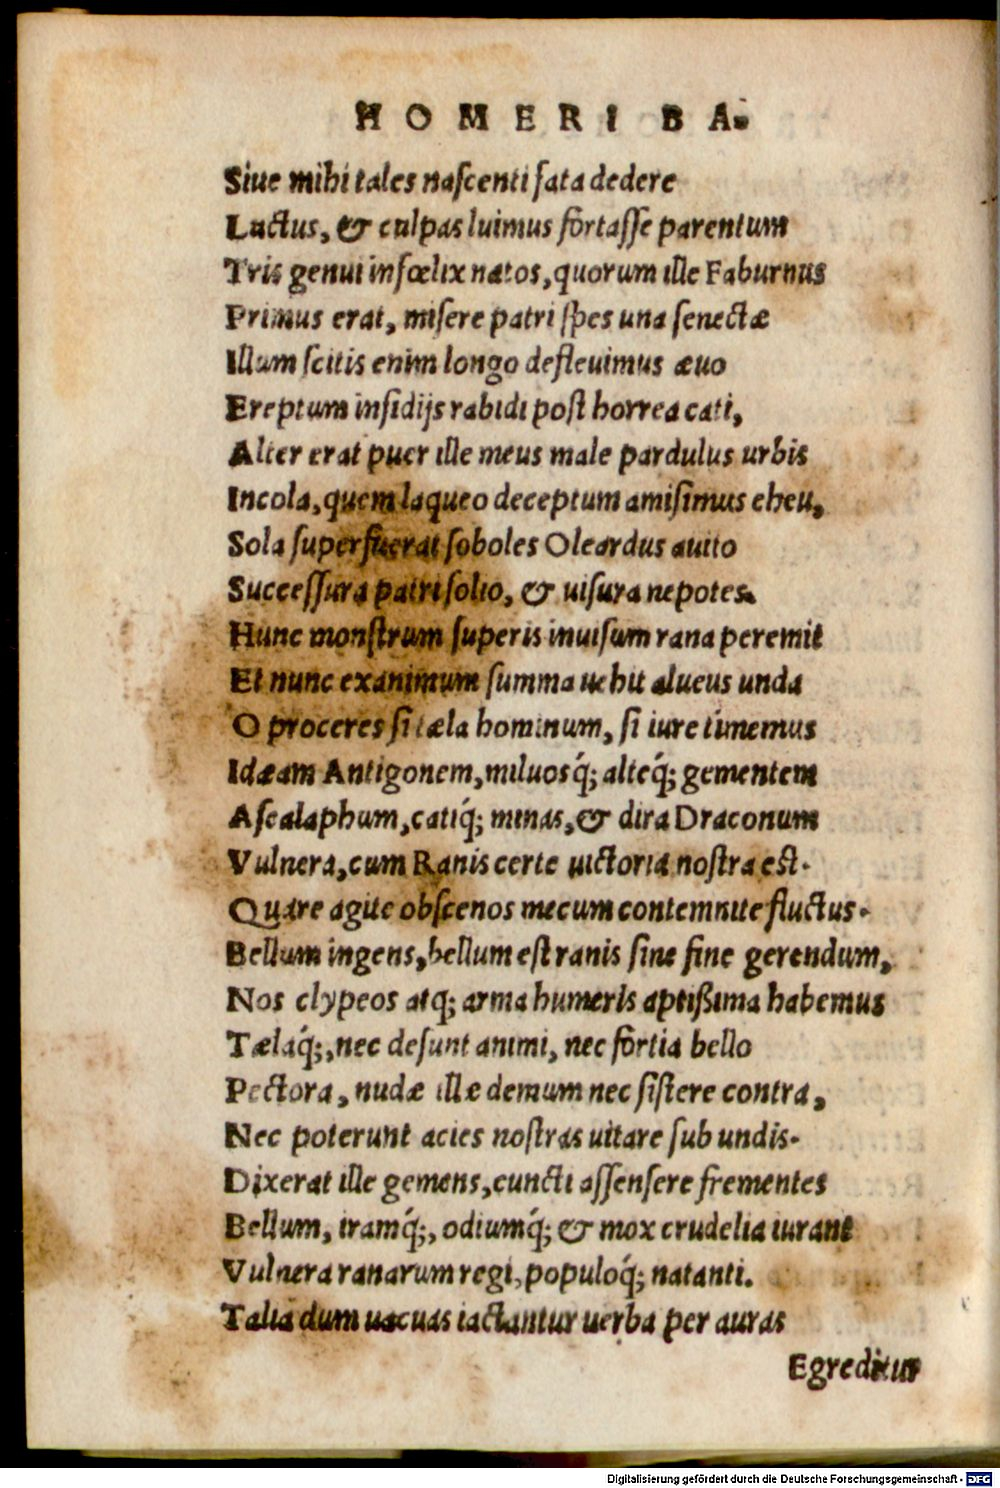 HOMERI BA.
Siue mihi tales nascenti fata dedere
Luctus, & culpas luimus fortasse parentum
Tris genui infœlix natos, quorum ille Faburnus
Primus erat, misere patri spes una senectæ
Illum scitis enim longo defleuimus æuo
Ereptum insidijs rabidi post horrea cati,
Alter erat puer ille meus male pardulus urbis
Incola, quem laqueo deceptum amisimus eheu,
Sola superfuerat soboles Oleardus auito
Successura patri solio, & uisura nepotes.
Hunc monstrum superis inuisum rana peremit
Et nunc exanimum summa uehit alueus unda
O proceres si tæla hominum, si iure timemus
Idæam Antigonem, miluosq́; alteq́; gementem
Ascalaphum, catiq́; minas, & dira Draconum
Vulnera, cum Ranis certe uictoria nostra est.
Quare agite obscenos mecum contemnite fluctus.
Bellum ingens, bellum est ranis sine fine gerendum,
Nos clypeos atq; arma humeris aptißima habemus
Tælaq́;, nec desunt animi, nec fortia bello
Pectora, nudæ illæ demum nec sistere contra,
Nec poterunt acies nostras uitare sub undis.
Dixerat ille gemens, cuncti assensere frementes
Bellum, iramq́;, odiumq́; & mox crudelia iurant
Vulnera ranarum regi, populoq́; natanti.
Talia dum uacuas iactantur uerba per auras
Egreditur
Digitalisierung gefördert durch die Deutsche Forschungsgemeinschaft - DFG